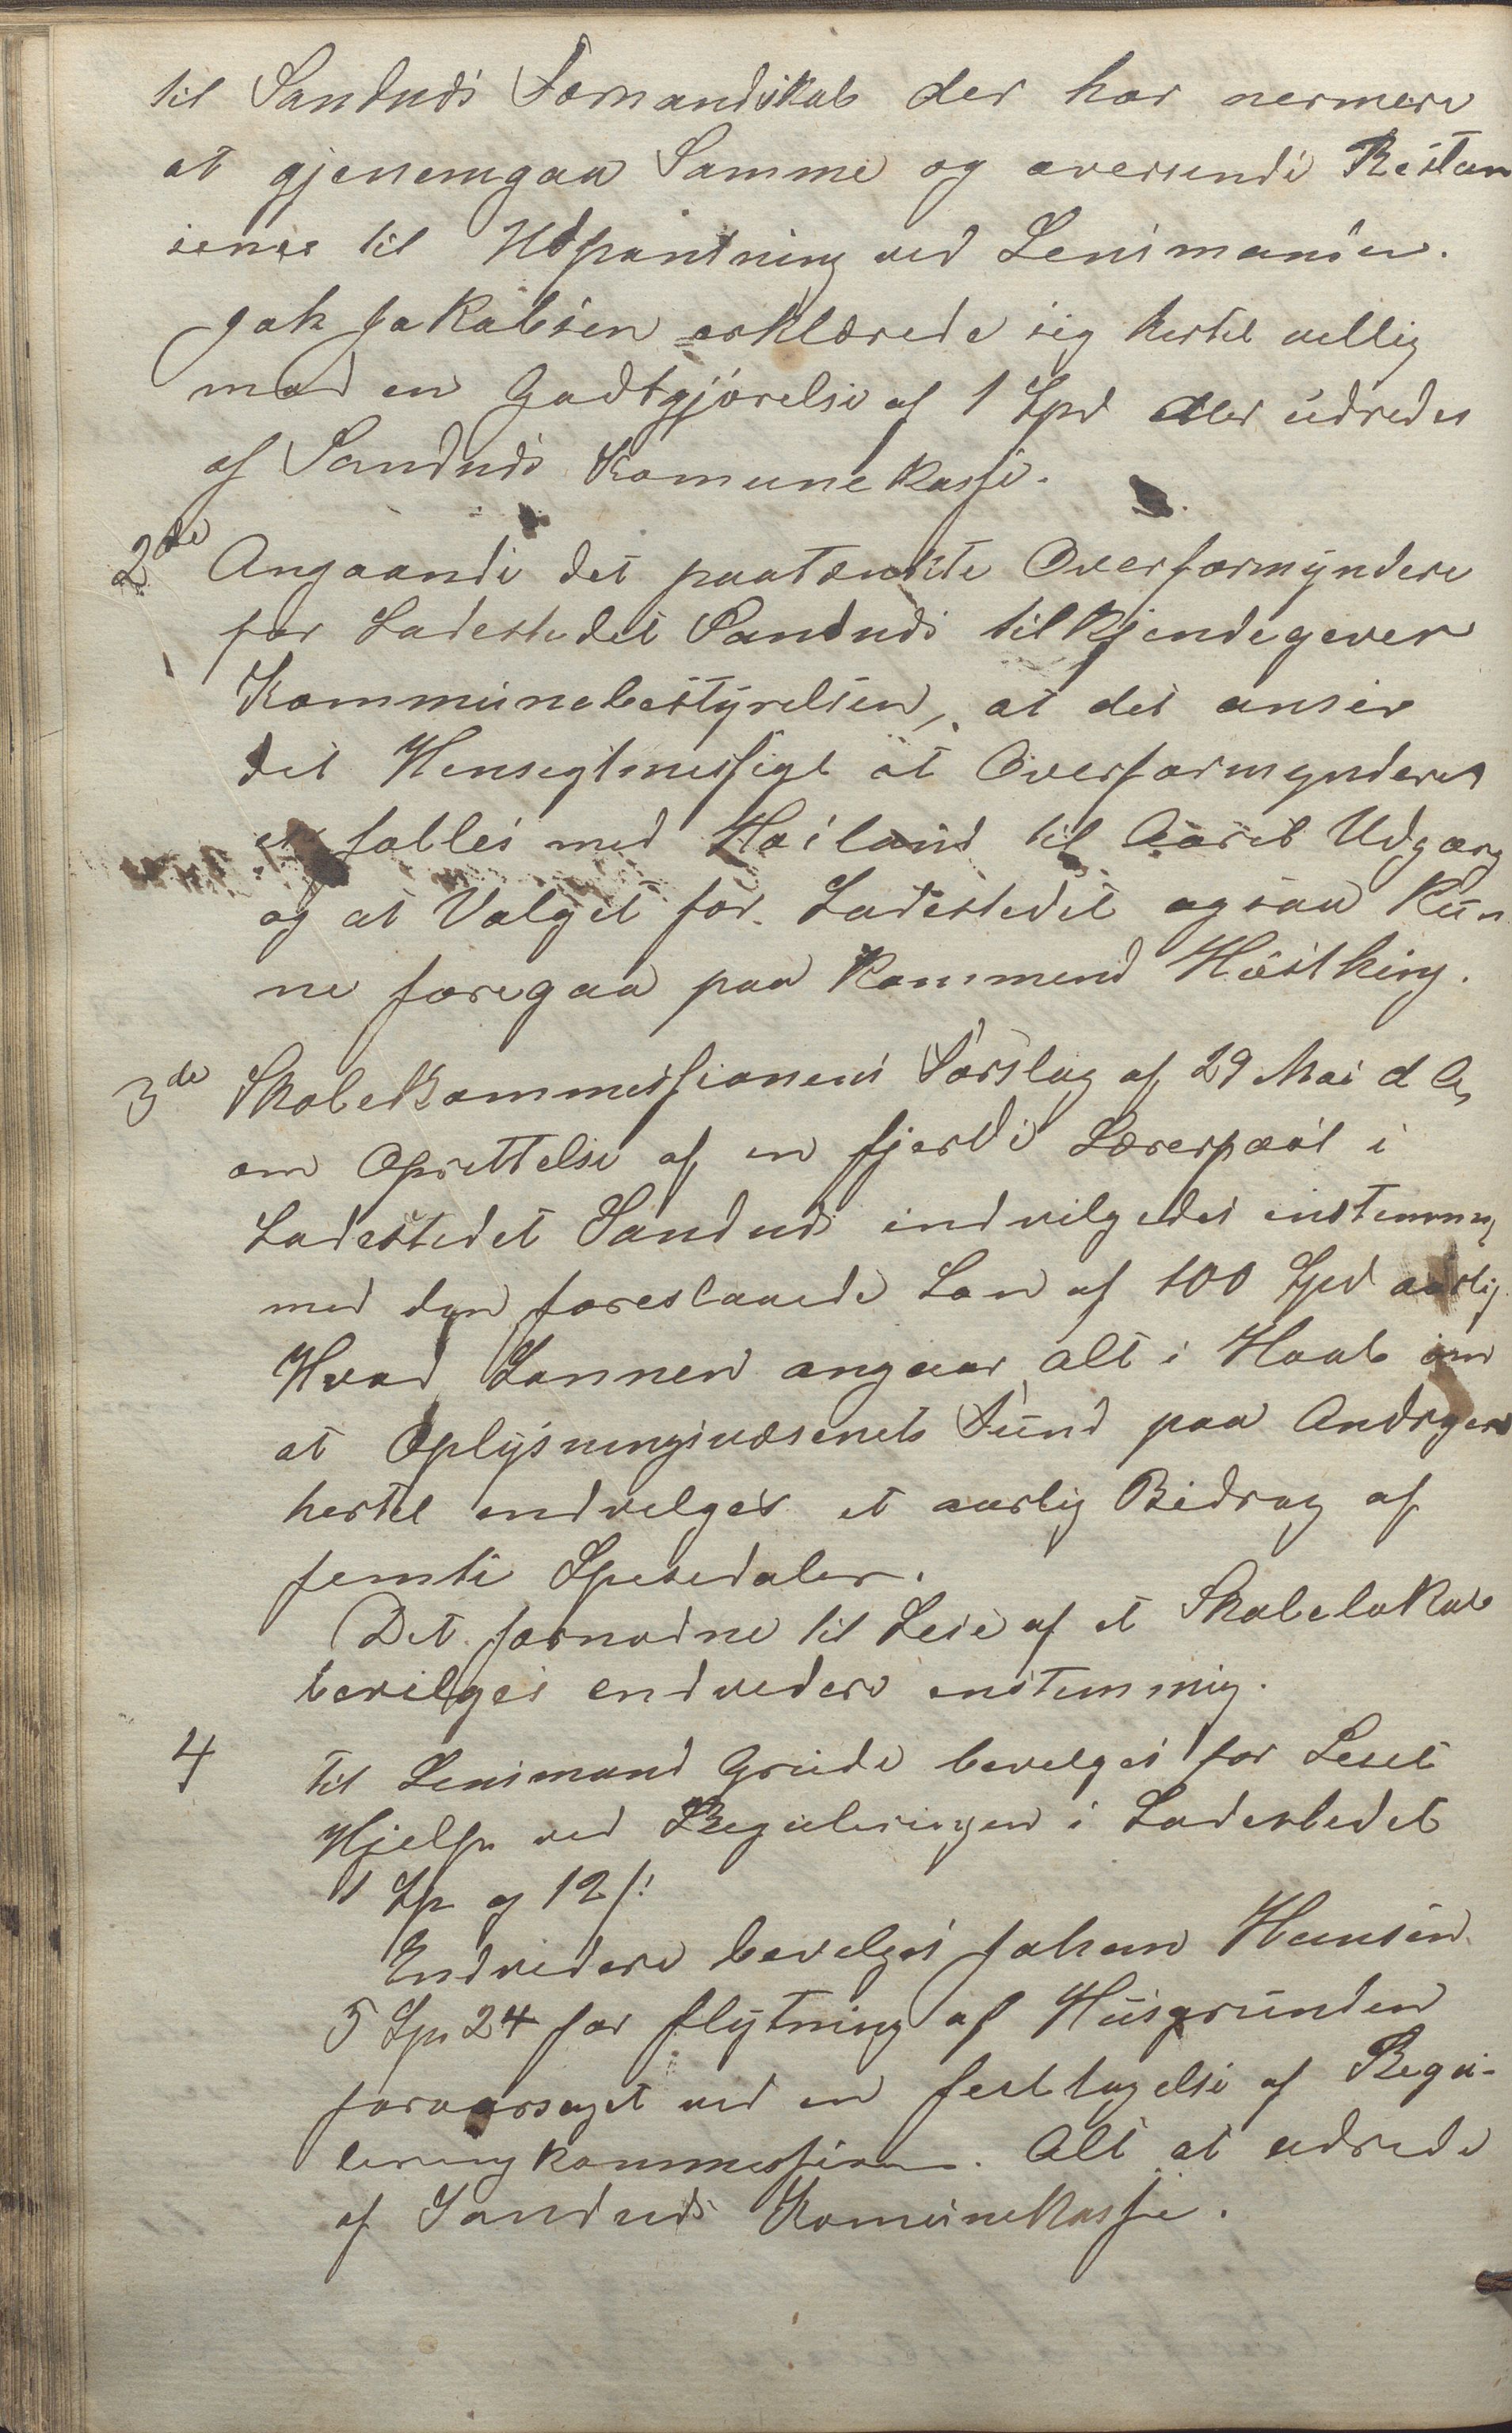 til Sandnds Formandskab der har nermere
at gjenemgaa Samme og oversende Restan
serne til Udpantning ved Lensmanden.
Joh Jakobsen erklærede sig hertil villig
mod en Godtgjørelse af 1 Spd der udredes
af Sandnds Komunekasse.
2de Angaaende det paatænkte Overformyndere
for Ladestedet Sandnds tilkjendegever
Kommunebestyrelsen, at det anser
det Hensigtmessigt at Overformynderet
er falles med Høiland til Aarets Udgang
og at Valget for Ladestedet ogsaa kun
ne foregaa paa kommend Høstthing.
3de Skolekommissionens Forslag af 29 Mai d A,
om Oprettelse af en fjerde Lærerpost i
Ladestedet Sandnds indvilgedes enstemmig
med den foreslaaede Løn af 100 Spd aarlig
Hvad Lønnen angaar, alt i Haab om
at Oplysningsvæsenets Fund paa Andragend
hertil indvelges et aarlig Bidrag af
femti Spesedaler.
Det fornødne til Leie af et Skolelokale
bevilges endvidere enstemmig.
4 til Lensmand Grude bevelges for Leiet
Hjelp ved Reguleringen i Ladestedet
1 Sp og 12 s:
Endvidere bevelges Johan Hansen
5 Sp 24 for flytning af Husgrunden
foraarsaget ved en feiltagelse af Regu-
leringkommissionen. Alt at udrede
af Sandnds Komunekasse.